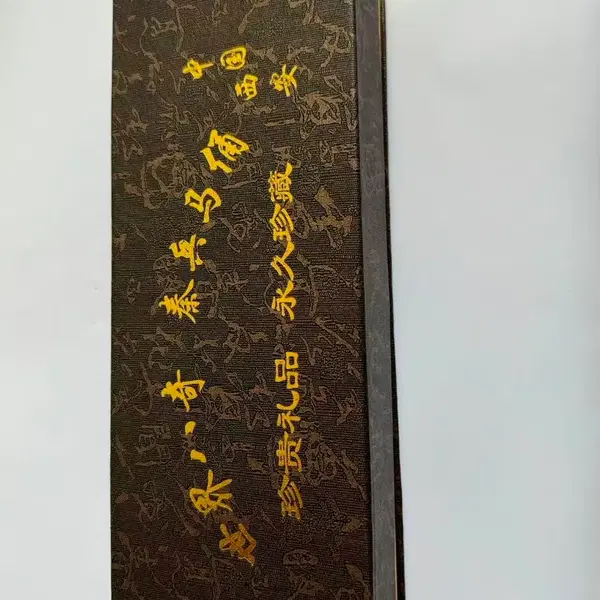 世界八奇 秦兵马俑
中国
西安
珍贵礼品 永久珍藏